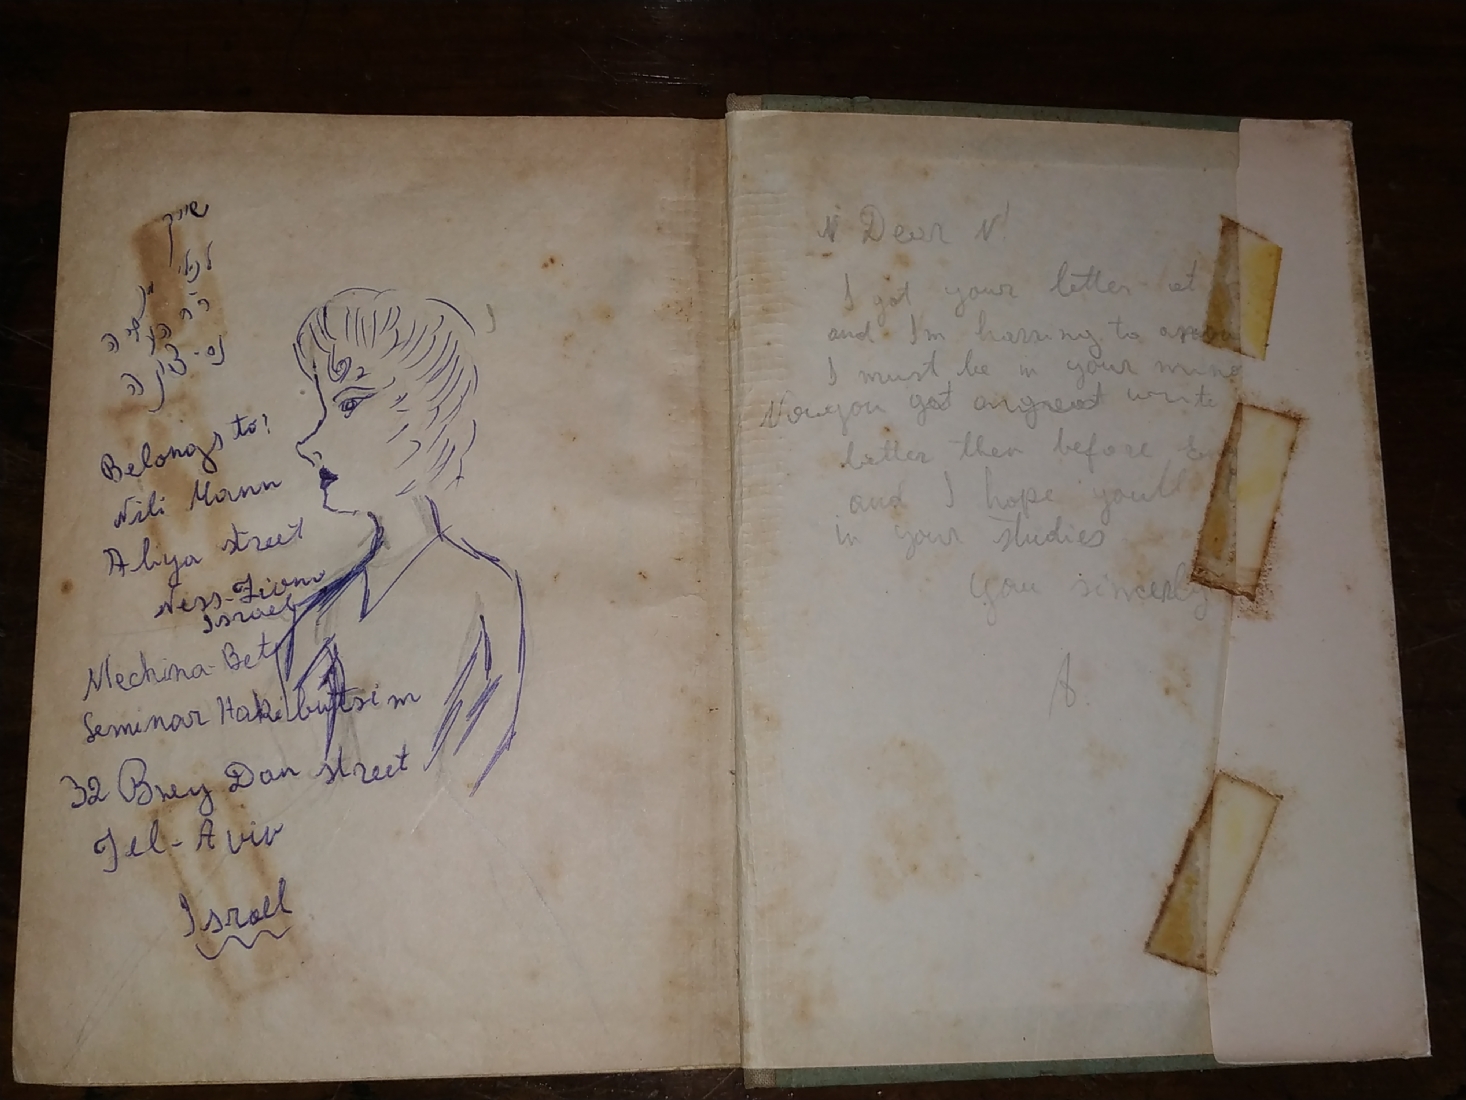 שייך
לנילי
נס-ציונה
Belongs to:
Nili Mann
Aliya street
Ness-Ziona
Israel
Mechina-Bet
Seminar Hakibutsim
32 Brey Dan street
Tel-Aviv
Israel
N Dear N!
I got your letter at
and I'm hurring to
I must be in your
Now you got write
better then before
and I hope youll
in your studies
your sincerly